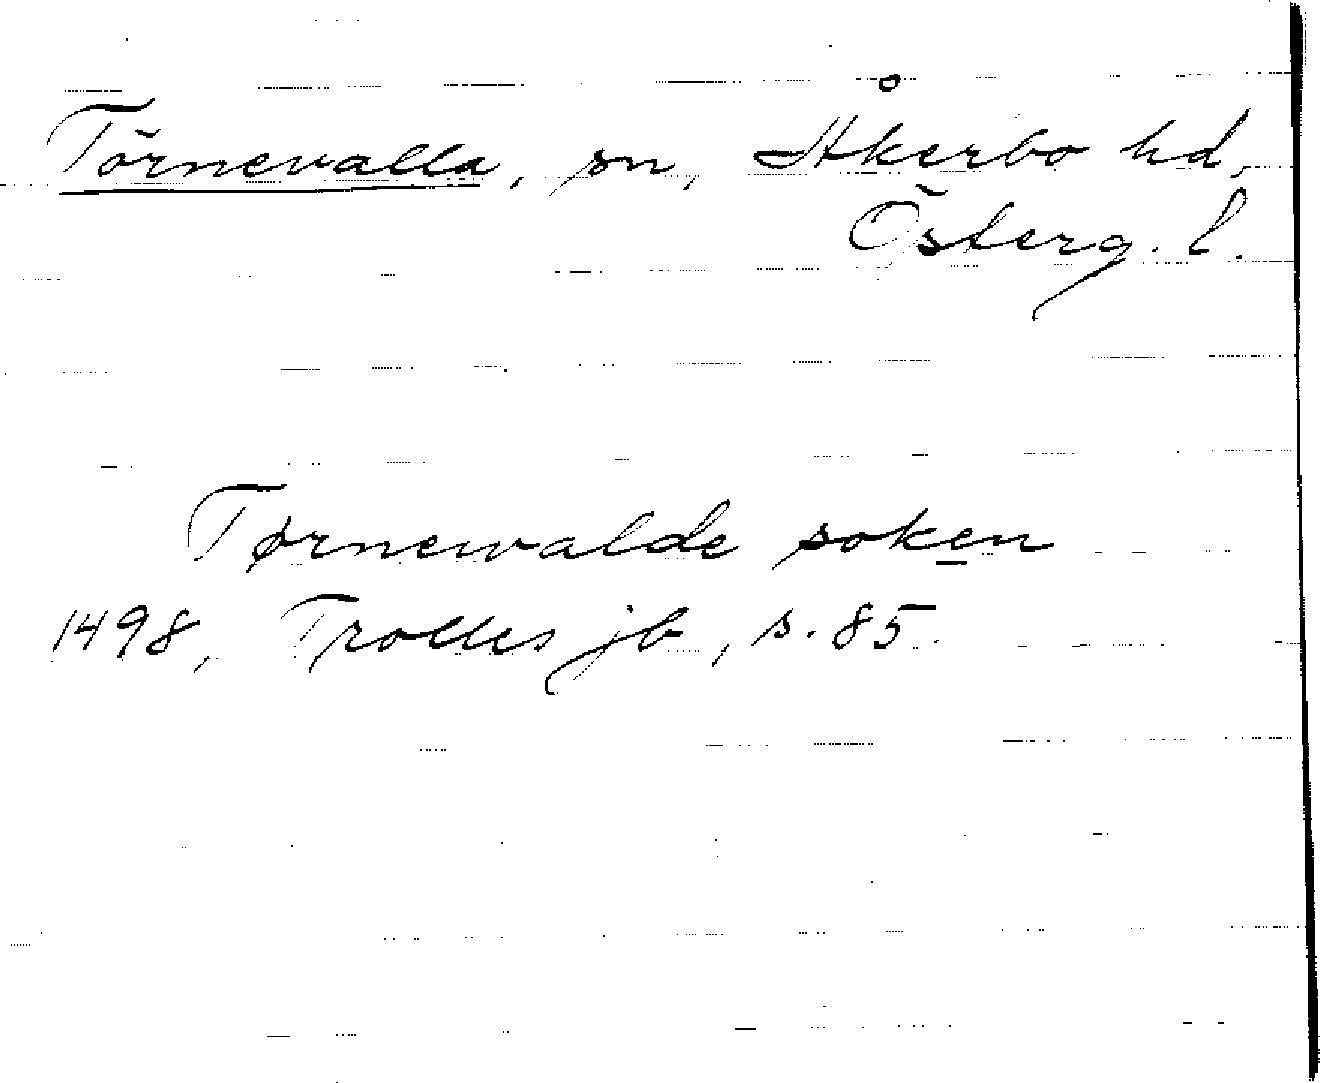 Törnevalla, sn, Åkerbo hd,
Österg. l.
Tørnewalde soken
1498, Trolles jb, s. 85.